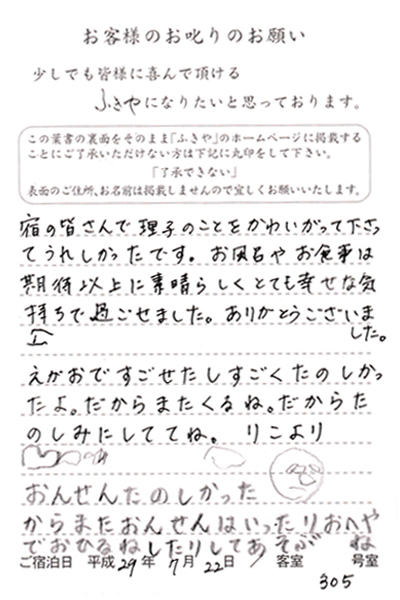 お客様のお叱りのお願い
少しでも皆様に喜んで頂ける
ふきやになりたいと思っております。
この葉書の裏面をそのまま「ふきや」のホームページに掲載する
ことにご了承いただけない方は下記に丸印をして下さい。
「了承できない」
表面のご住所、お名前は掲載しませんので宜しくお願いいたします。
宿の皆さんで理子のことをかわいがって下さっ
てうれしかったです。お風呂やお食事は
期待以上に素晴らしくとても幸せな気
持ちで過ごせました。ありがとうございま
した。
えがおですごせたしすごくたのしかっ
たよ。だからまたくるね。だからた
のしみにしててね。 りこより
おんせんたのしかった
からまたおんせんはいったりおへや
でおひるねしたりしてあそぶ ね
ご宿泊日 平成29年 7月22日 客室 305 号室